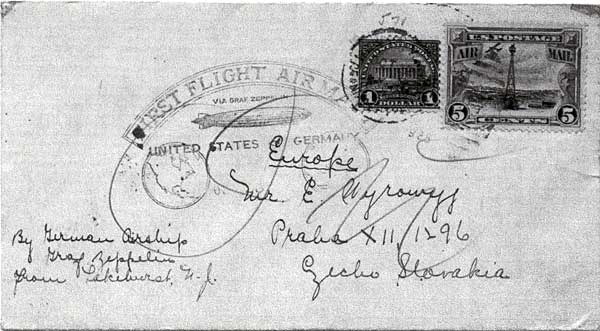 FIRST FLIGHT AIR M
VIA GRAF ZEPPELIN
UNITED STATES GERMANY
1 1
DOLLAR
U.S. POSTAGE
AIR MAIL
5 5
CENTS
Europe
Mr. E.
Praha XII, 1296
Czecho Slovakia
By German Airship
Graf Zeppelin
from Lakehurst, N.J.